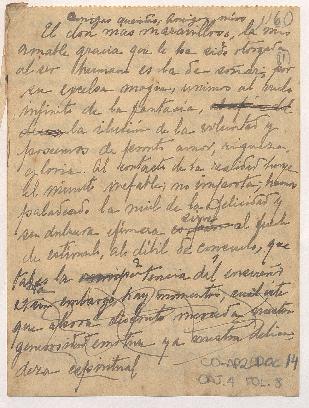 amigas queridas, amigos míos 1160
El don mas maravilloso, la mas
estimable gracia que le ha sido otorgada (1)
al ser humano es la de soñar, por
su excelsa magia, unirnos al vuelo
infinito de la fantasía,
la ilusión de la voluntad y
poseernos de pronto amor, riqueza,
gloria. Al contacto de la realidad huye
el minuto inefable; no importa, hemos
paladeado la miel de la felicidad y
su dulzura efímera sirve al fuerte
de estímulo, al débil de consuelo, que
tal es la potencia del ensueño
Y sin embargo hay momentos, cual este
que ahora disfruto merced a vuestra
generosidad emotiva y a vuestra delica
deza espiritual
CO-AP2 DOC 14
CAJ. 4 FOL. 8